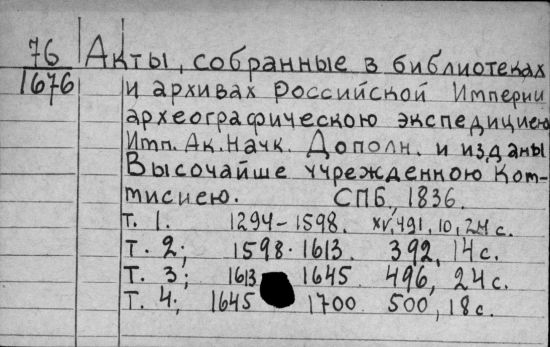 76
1676
Акты, собранные в библиотеках
и архивах Российской Империи
археографическою экспедициею
Имп. Ак. Наук. Дополн. и изданы
Высочайше учрежденною Ком-
миссиею. СПБ., 1836.
Т. 1. 1294-1598. XV, 491, 10, 24 с.
Т. 2; 1598-1613. 392, 14 с.
Т. 3; 1613 1645 496, 24 с.
Т. 4; 1645 1700 500, 18 с.